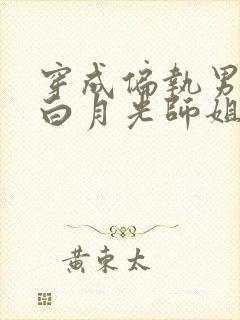 穿成偏執男
白月光師姐
黃東太